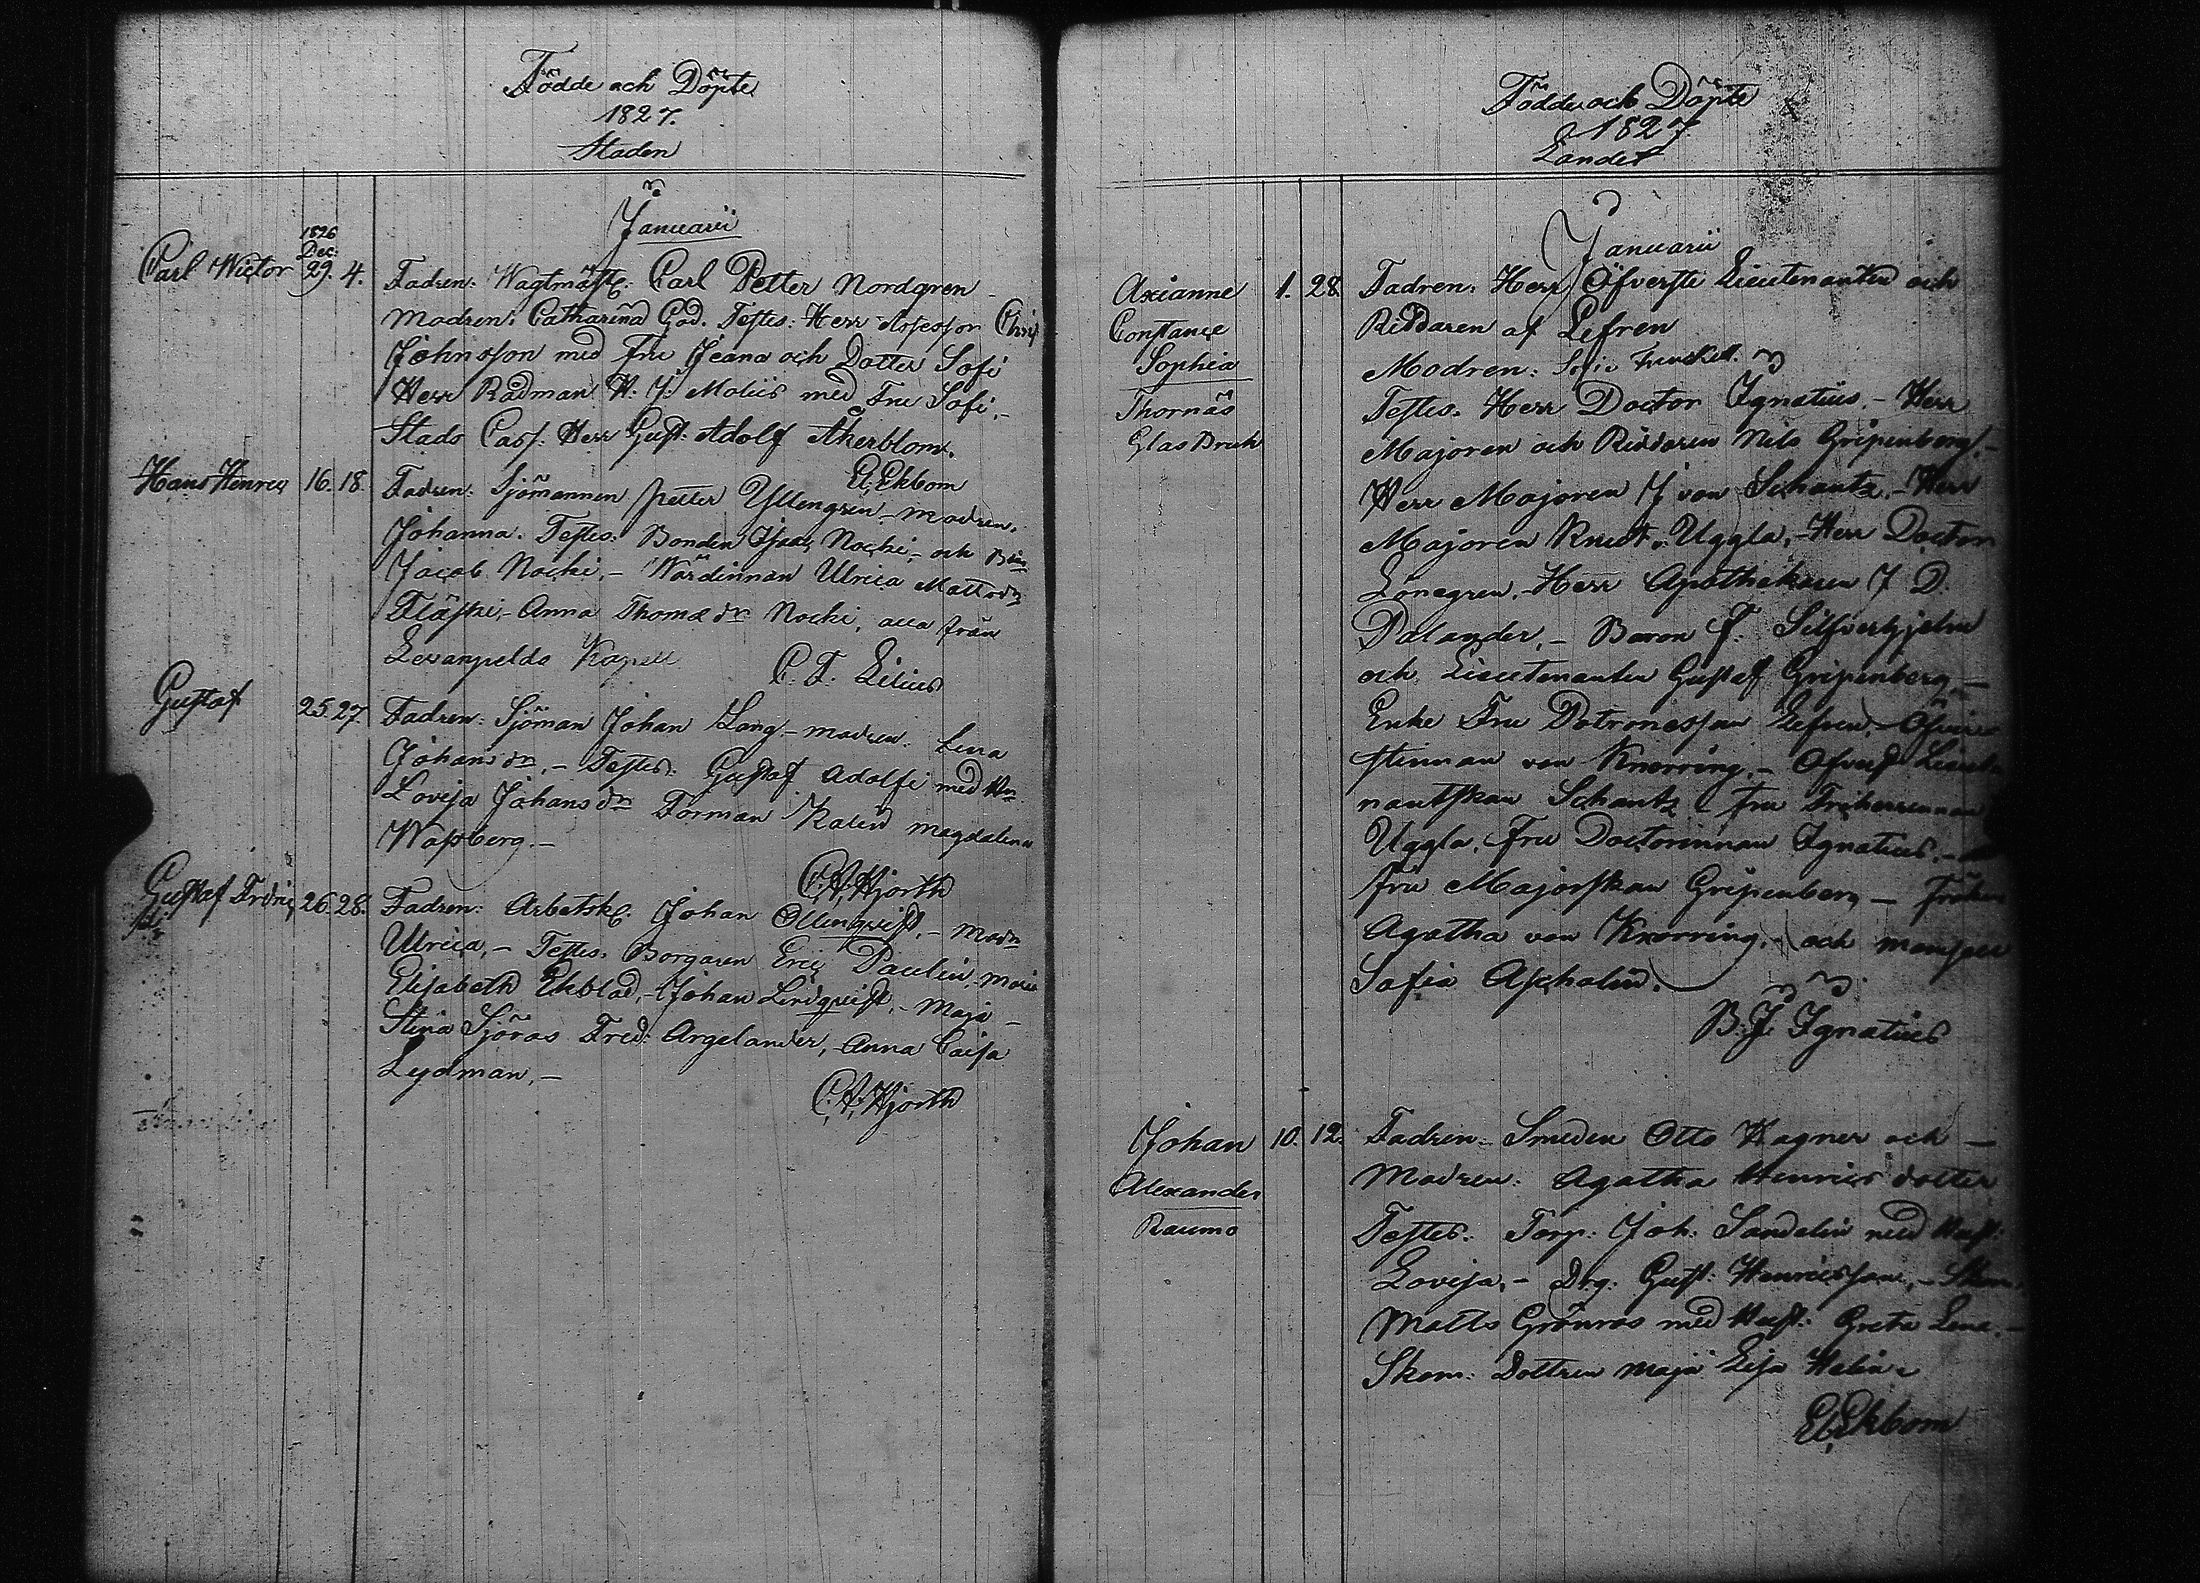 Födde och Döpte
1827.
Staden
Januarii
1826
Dec:
Carl Wictor 29. 4. Fadren: Wagtmäst: Carl Petter Nordgren
modren: Catharina God. Testes: Herr Assessor Chris
Johnsson med Fru Jeana och Dotter Sofi
Herr Rådman H: J: Moliis med Fru Sofi.-
Stads Cass: Herr Gust: Adolf Åkerblom.
E. Ekbom
Hans Henric 16. 18. Fadren: Sjömannen petter Yllengren - modren.
Johanna. Testes: Bonden Isaac Nocki, - och
Jacob Nocki, - Wärdinnan Ulrica Matts dr
Fläski, - Anna Thomæ dr Nocki, alla från
Kapell
C. F. Lilius
Gustaf 25. 27. Fadren: Sjöman Johan Lang - modren: Lena
Johans dr, - Testes: Gustaf Adolfi med
Lovisa Johans dr Forman Kalin magdalena
Wassberg. -
C. A. Hjorth
Gustaf Fredric 26. 28. Fadren: Arbetsk: Johan Ollenqvist, - Modn
Ulrica, - Testes. Borgaren Eric Paulin, - Maria
Elisabeth Ekblad, - Johan Lindqvist, - Maja -
Stina Sjöros Fred: Argelander, - Anna Caisa
Lydman, -
C. A. Hjorth
Födde och Döpte
1827.
Landet
Januarii
Axianne 1. 28 Fadren: Herr Öfverste Lieutenanten och
Constance Riddaren af Lefren
Sophia Modren: Sofie
Thornäs Testes: Herr Doctor Ignatius. - Herr
Glas Bruk Majoren och Riddaren Nils Gripenberg. -
Herr Majoren J von Schantz, - Herr
Majoren Knut Uggla, - Herr Doctor
Lönegren, - Herr Apothekaren J D.
Palander, - Baron F: Silfverhjelm
och Lieutenanten Gustaf Gripenberg -
Enke Fru Patronessan Lefren, -
stinnan von Knorring, - Ofverst Lieute
nantskan Schantz Fru Friherrinnan
Uggla, Fru Doctorinnan Ignatius, -
Fru Majorskan Gripenberg - Fröken
Agatha von Knorring, - och mamsell
Safia Ascholin.
B: J: Ignatius
Johan 10. 12. Fadren - Smeden Otto Wagner och -
Alexander Modren: Agatha Henrics dotter
Raumo Testes: Torp: Joh: Sandelin med Hust:
Lovisa, - Drg: Gust: Henricsson, -
Matts Grönros med Hust: Greta Lena. -
Skom: Dottren maja Lisa Helin
E. Ekbom